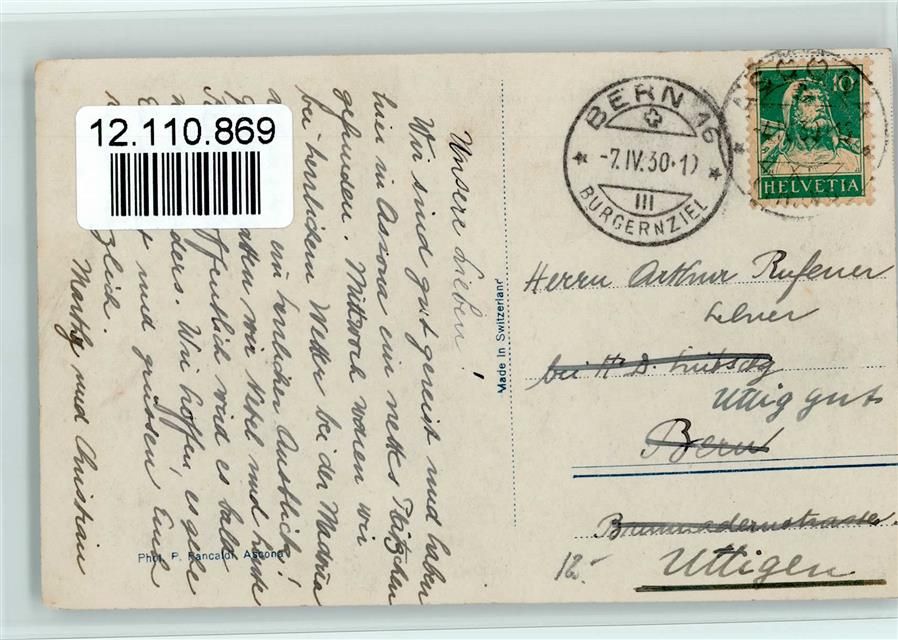 12.110.869
Unsere Lieben!
Wir sind gut gereist und haben
hier in Ascona ein nettes Plätzchen
gefunden. Mittwoch waren wir
bei herrlichem Wetter bei der Madonna
ein herrlicher Ausblick!
wir Nebel und
hoffentlich wird es bald
anders. Wir hoffen, es gehe
Euch gut und grüssen Euch
herzlich.
Marthy und Christian
Phot. P. Pancaldi, Ascona
Made in Switzerland
BERN 16
-7.IV.30.-12
III
BURGERNZIEL
10
HELVETIA
Herrn Arthur Rufener
Lehrer
bei Hr D.
Uttiggut
Bern
Brunnadernstrasse
Uttigen
12.-